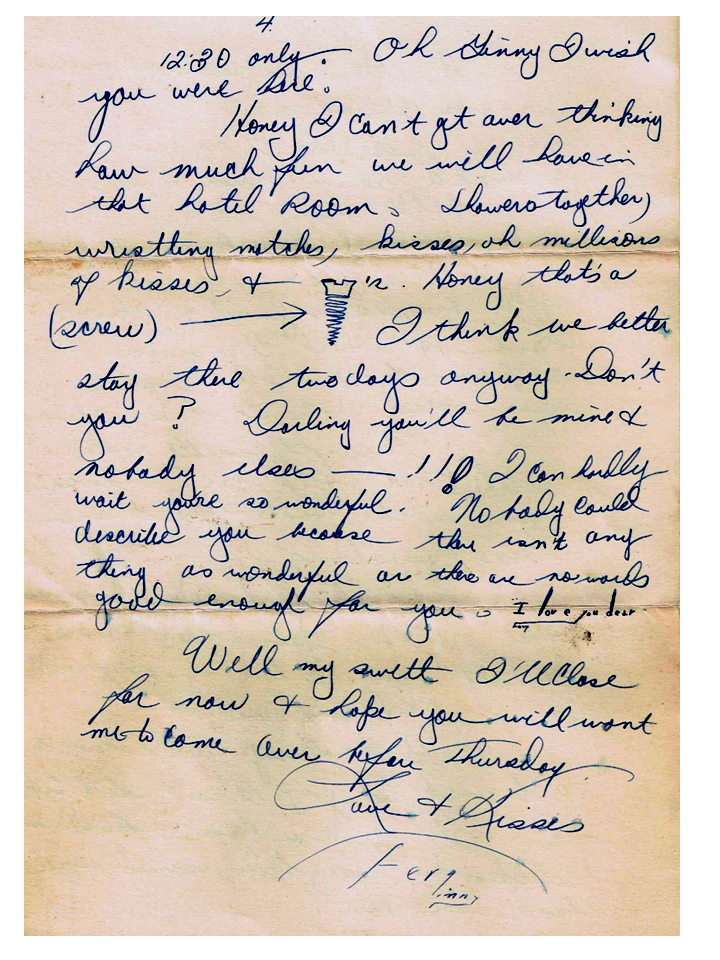 4.
12:30 only. Oh Ginny I wish
you were here.
Honey I can't get over thinking
how much fun we will have in
that hotel room. (Showers together)
wrestling matches, kisses, oh millions
of kisses, & 's. Honey that's a
(screw) → I think we better
stay there two days anyway. Don't
you? Darling you'll be mine &
nobody elses — !!!
I can hardly
wait you're so wonderful. Nobody could
describe you because there isn't any
thing as wonderful or there are no words
good enough for you. I love you dear
Well my swett I'll Close
for now & hope you will want
me to come over before Thursday
Love & Kisses
Ferg
inny